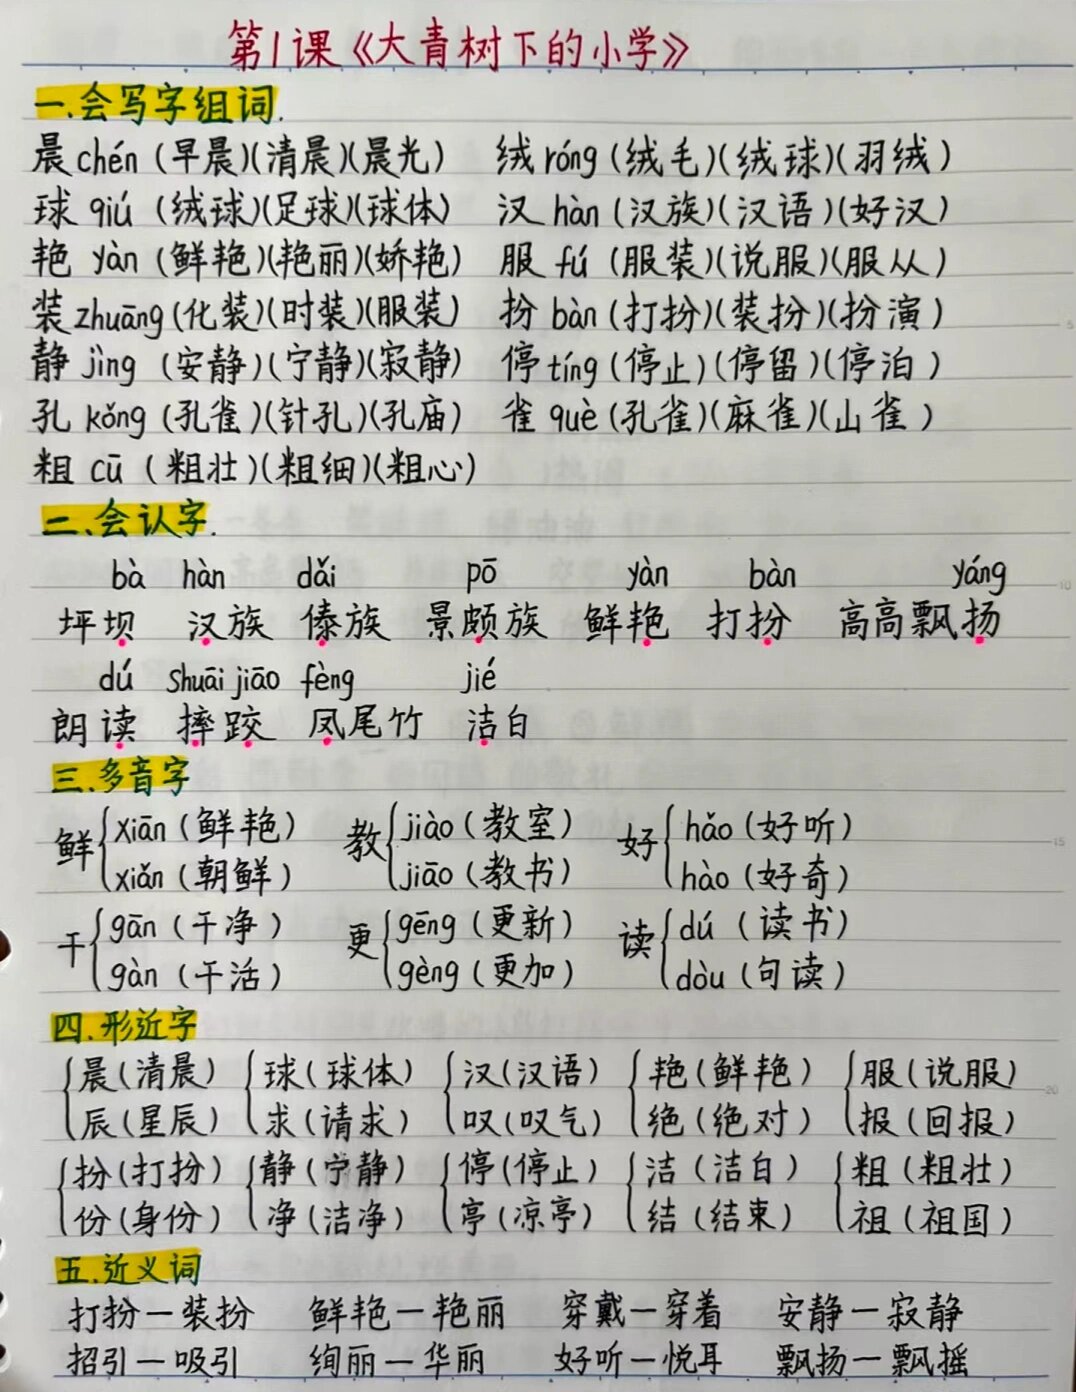 第1课《大青树下的小学》
一.会写字组词.
晨 chén (早晨)(清晨)(晨光) 绒 róng (绒毛)(绒球)(羽绒)
球 qiú (绒球)(足球)(球体) 汉 hàn (汉族)(汉语)(好汉)
艳 yàn (鲜艳)(艳丽)(娇艳) 服 fú (服装)(说服)(服从)
装 zhuāng (化装)(时装)(服装) 扮 bàn (打扮)(装扮)(扮演)
静 jìng (安静)(宁静)(寂静) 停 tíng (停止)(停留)(停泊)
孔 kǒng (孔雀)(针孔)(孔庙) 雀 què (孔雀)(麻雀)(山雀)
粗 cū (粗壮)(粗细)(粗心)
二、会认字.
bà hàn dǎi pō yàn bàn yáng
坪坝 汉族 傣族 景颇族 鲜艳 打扮 高高飘扬
dú shuāi jiāo fèng jié
朗读 摔跤 凤尾竹 洁白
三.多音字
鲜 { xiān (鲜艳) 教 { jiào (教室) 好 { hǎo (好听)
xiǎn (朝鲜) jiāo (教书) hào (好奇)
干 { gān (干净) 更 { gēng (更新) 读 { dú (读书)
gàn (干活) gèng (更加) dòu (句读)
四.形近字
{ 晨(清晨) { 球(球体) { 汉(汉语) { 艳(鲜艳) { 服(说服)
辰(星辰) 求(请求) 叹(叹气) 绝(绝对) 报(回报)
{ 扮(打扮) { 静(宁静) { 停(停止) { 洁(洁白) { 粗(粗壮)
份(身份) 净(洁净) 亭(凉亭) 结(结束) 祖(祖国)
五.近义词
打扮—装扮 鲜艳—艳丽 穿戴—穿着 安静—寂静
招引—吸引 绚丽—华丽 好听—悦耳 飘扬—飘摇